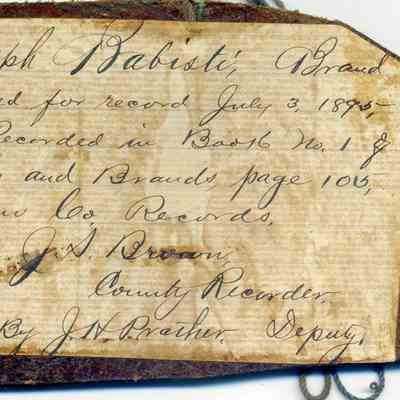 ph Babisti, Brand
ed for record July 3, 1895,
Recorded in Book No. 1 of
s and Brands, page 105,
Co. Records,
J. S. Brown,
County Recorder.
By J. H. Pracher. Deputy.